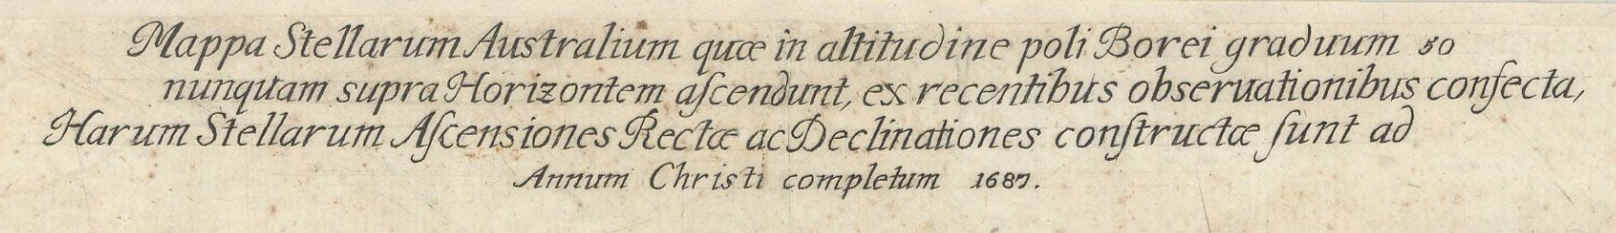 Mappa Stellarum Australium quæ in altitudine poli Borei graduum 50
nunquam supra Horizontem aſcendunt, ex recentibus obseruationibus confecta,
Harum Stellarum Aſcensiones Rectæ ac Declinationes conſtructæ ſunt ad
Annum Christi completum 1687.